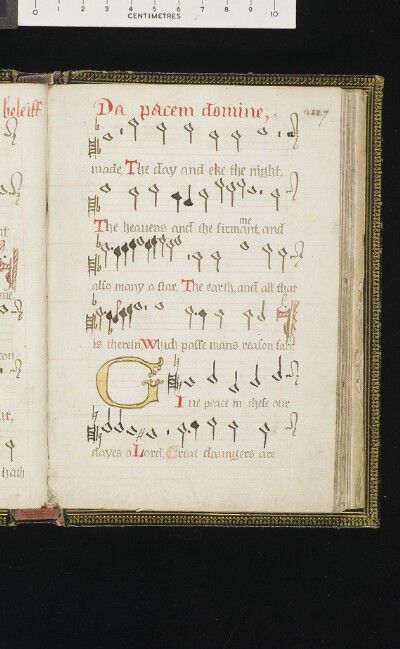 0 1 2 3 4 5 6 7 8 9 10
CENTIMETRES
beleiff
Da pacem domine,
made, The day and eke the night,
The heauens and the firmant, and
me
also many a star, The earth, and all that
is therein Which passe mans reason farr
Giue peace in these our
dayes o Lord, Great daungers are
hath